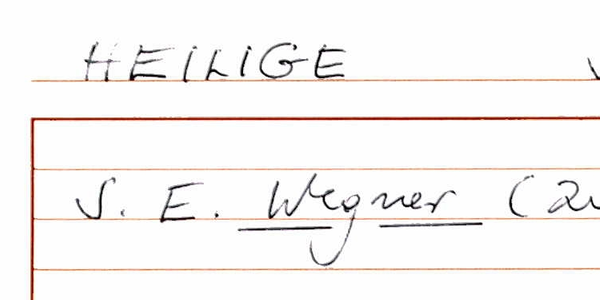 HEILIGE
S. E. Wegner (